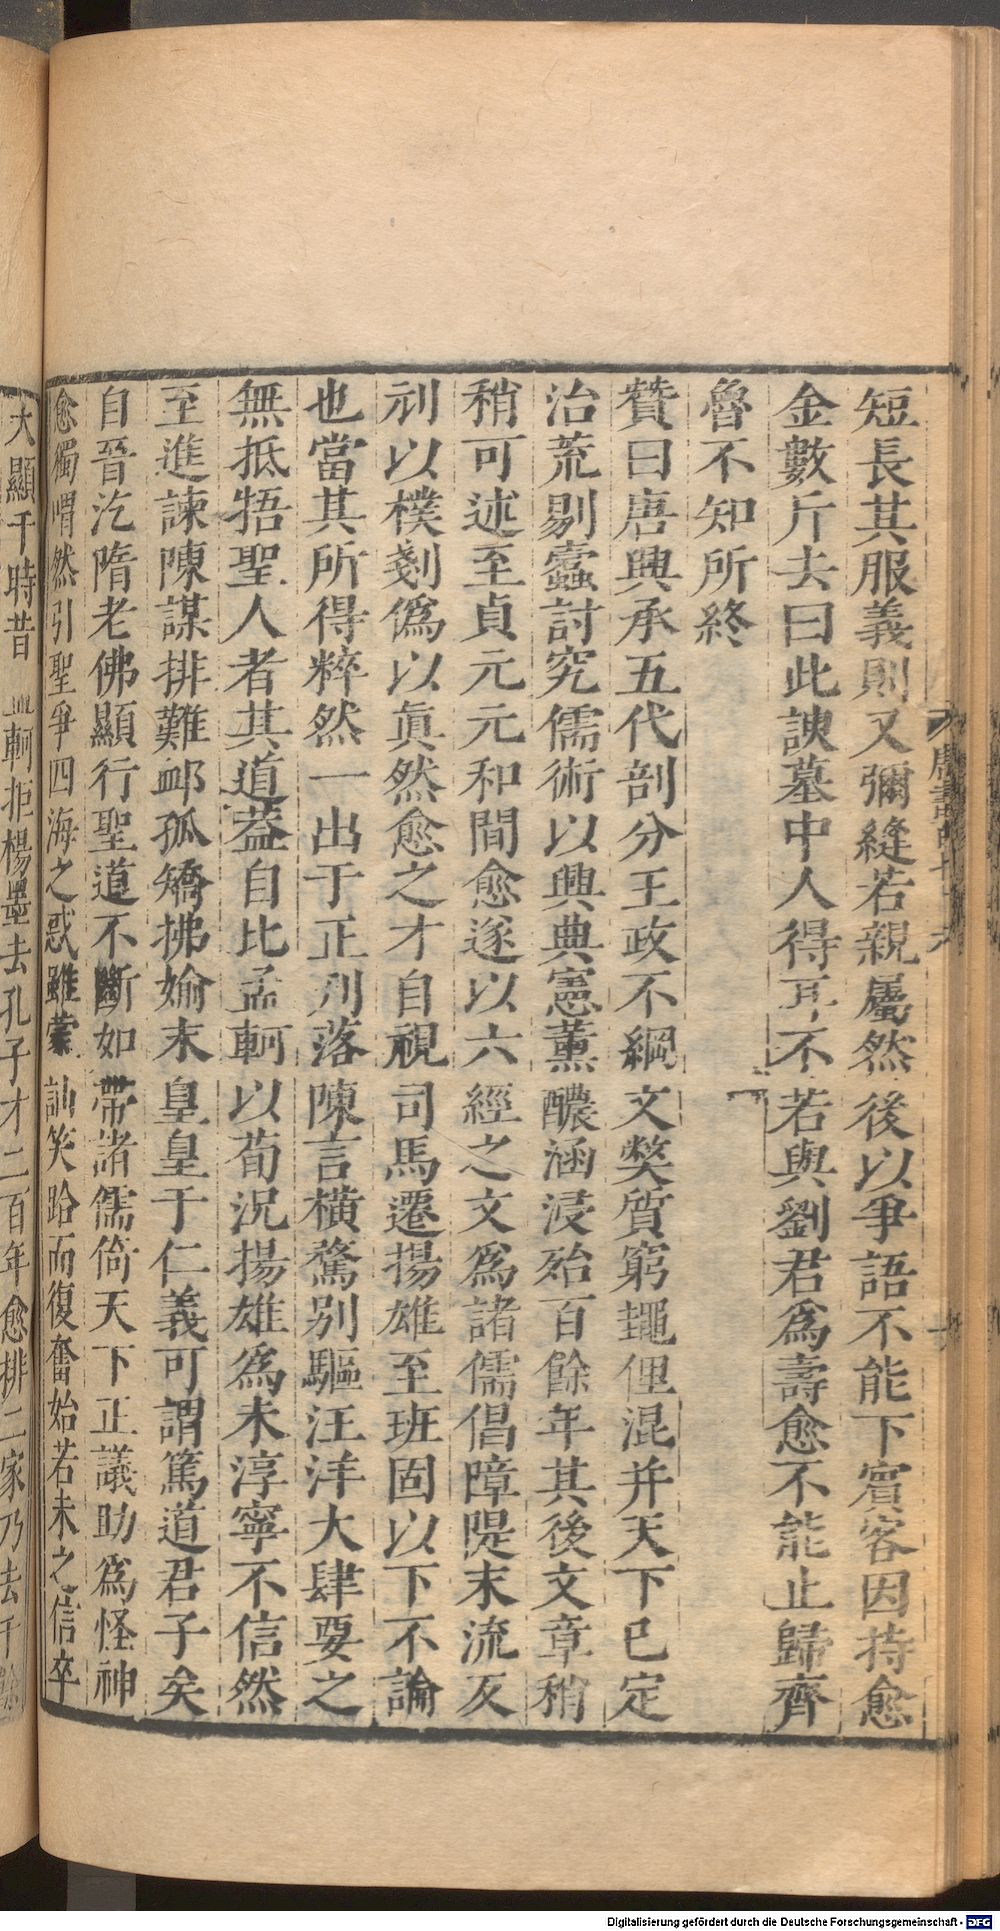 短長其服義則又彌縫若親屬然後以爭語不能下賓客因持愈
金數斤去曰此諛墓中人得耳不若與劉君爲壽愈不能止歸齊
魯不知所終
贊曰唐興承五代剖分王政不綱文獘質窮䵷俚混并天下已定
治荒剔蠹討究儒術以興典憲薰醲涵浸殆百餘年其後文章稍
稍可述至貞元元和間愈遂以六經之文爲諸儒倡障隄末流反
刓以樸剗僞以眞然愈之才自視司馬遷揚雄至班固以下不論
也當其所得粹然一出于正刋落陳言橫鶩别驅汪洋大肆要之
無抵牾聖人者其道葢自比孟軻以荀況揚雄爲未淳寧不信然
至進諫陳謀排難䘏孤矯拂媮末皇皇于仁義可謂篤道君子矣
自晉汔隋老佛顯行聖道不斷如帶諸儒倚天下正議助爲怪神
愈獨喟然引聖爭四海之惑雖蒙訕笑跲而復奮始若未之信卒
大顯于時昔軻拒楊墨去孔子才二百年愈排二家乃去千餘
Digitalisierung gefördert durch die Deutsche Forschungsgemeinschaft - DFG